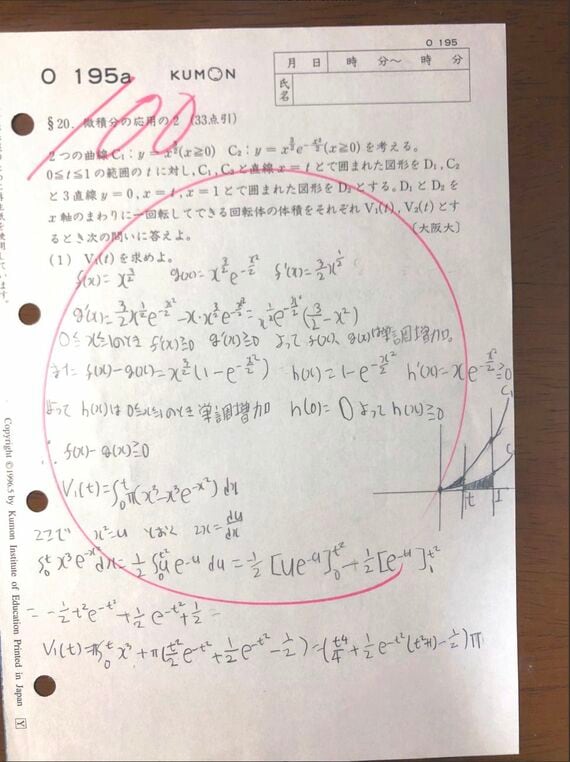 O 195
O 195a KUMON
月 日 時 分～ 時 分
氏名
100
§20. 微積分の応用の2 (33点引)
2つの曲線C₁：y=x^{3/2}(x≧0) C₂：y=x^{3/2}e^{-x²/2}(x≧0)を考える。
0≦t≦1の範囲のtに対し，C₁, C₂と直線x=tとで囲まれた図形をD₁, C₂
と3直線y=0, x=t, x=1とで囲まれた図形をD₂とする。D₁とD₂を
x軸のまわりに一回転してできる回転体の体積をそれぞれV₁(t), V₂(t)とす
るとき次の問いに答えよ。
〔大阪大〕
(1) V₁(t)を求めよ。
f(x)=x^{3/2} g(x)=x^{3/2}e^{-x²/2} f'(x)=3/2x^{1/2}
g'(x)=3/2x^{1/2}e^{-x²/2}-x・x^{3/2}e^{-x²/2}=x^{1/2}e^{-x²/2}(3/2-x²)
0≦x≦1のとき f'(x)≧0 g'(x)≧0 よって f(x), g(x)は単調増加。
また f(x)-g(x)=x^{3/2}(1-e^{-x²/2}) h(x)=1-e^{-x²/2} h'(x)=xe^{-x²/2}≧0
よって h(x)は 0≦x≦1のとき 単調増加 h(0)=0 よって h(x)≧0
∴ f(x)-g(x)≧0
C₁
C
t 1
V₁(t)=∫₀ᵗπ(x³-x³e^{-x²})dx
ここで x²=u とおく 2x=du/dx
∫₀ᵗx³e^{-x²}dx=1/2∫₀^{t²}ue^{-u}du=-1/2[ue^{-u}]₀^{t²}+1/2[e^{-u}]₁^{t²}
=-1/2t²e^{-t²}+1/2e^{-t²}+1/2=
V₁(t)=π∫₀ᵗx³+π(t²/2e^{-t²}+1/2e^{-t²}-1/2)=(t⁴/4+1/2e^{-t²}(t²+1)-1/2)π
Copyright ©1996.5 by Kumon Institute of Education Printed in Japan Y